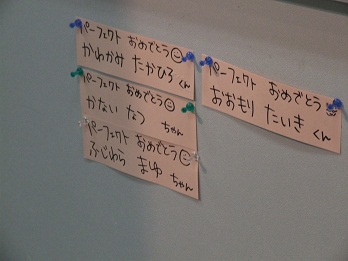 パーフェクト おめでとう
かわかみ たかひろ くん
パーフェクト おめでとう
かない なつ ちゃん
パーフェクト おめでとう
ふじわら まゆ ちゃん
パーフェクト おめでとう
おおもり たいき くん